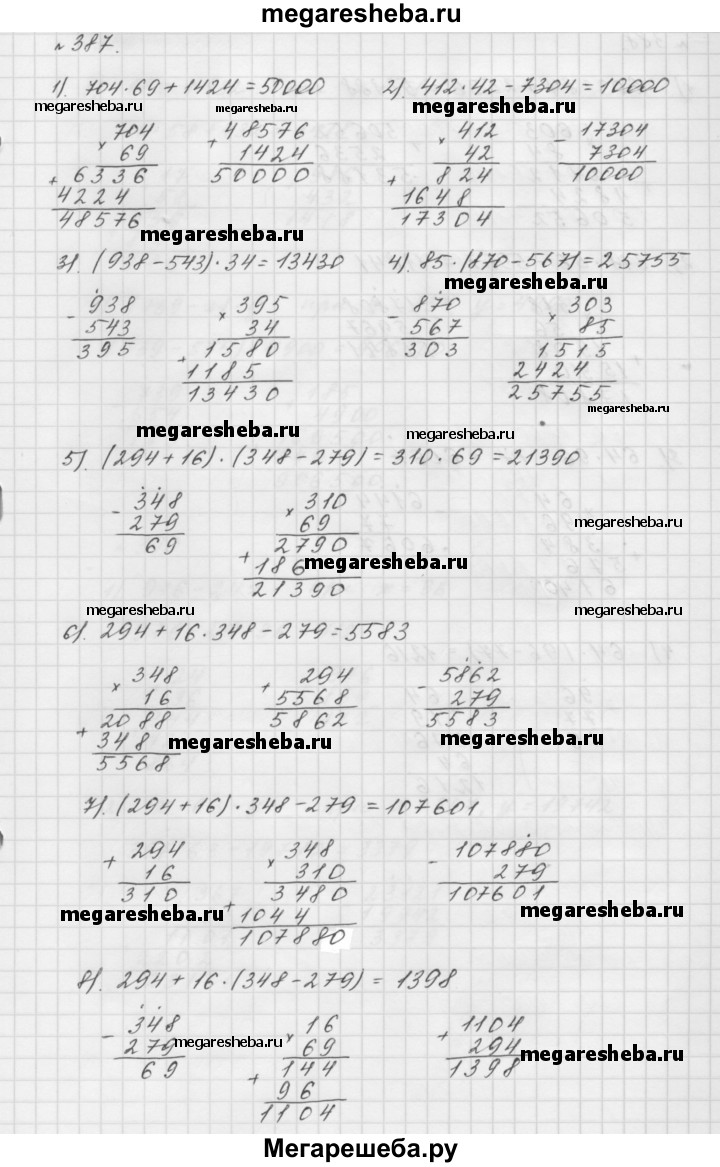 megaresheba.ru
№ 387.
1). 704·69+1424=50000 2). 412·42-7304=10000
megaresheba.ru megaresheba.ru megaresheba.ru
704 48576 412 17304
× 69 + 1424 × 42 - 7304
+ 6336 50000 + 824 10000
4224 1648
48576 17304
megaresheba.ru
3). (938-543)·34=13430 4). 85·(870-567)=25755
megaresheba.ru
- 938 × 395 - 870 × 303
543 34 567 85
395 + 1580 303 1515
1185 2424
13430 25755
megaresheba.ru
megaresheba.ru megaresheba.ru
5). (294+16)·(348-279)=310·69=21390
- 348 × 310
279 69
69 + 2790
megaresheba.ru
186
megaresheba.ru
21390
megaresheba.ru megaresheba.ru
6). 294+16·348-279=5583
× 348 + 294 - 5862
16 5568 279
+ 2088 5862 5583
348
megaresheba.ru megaresheba.ru
5568
7). (294+16)·348-279=107601
+ 294 × 348 - 107880
16 310 279
310 + 3480 107601
megaresheba.ru megaresheba.ru
1044
107880
8). 294+16·(348-279)=1398
- 348 × 16 + 1104
279 69 294
megaresheba.ru megaresheba.ru
69 + 144 1398
96
1104
Мегарешеба.ру